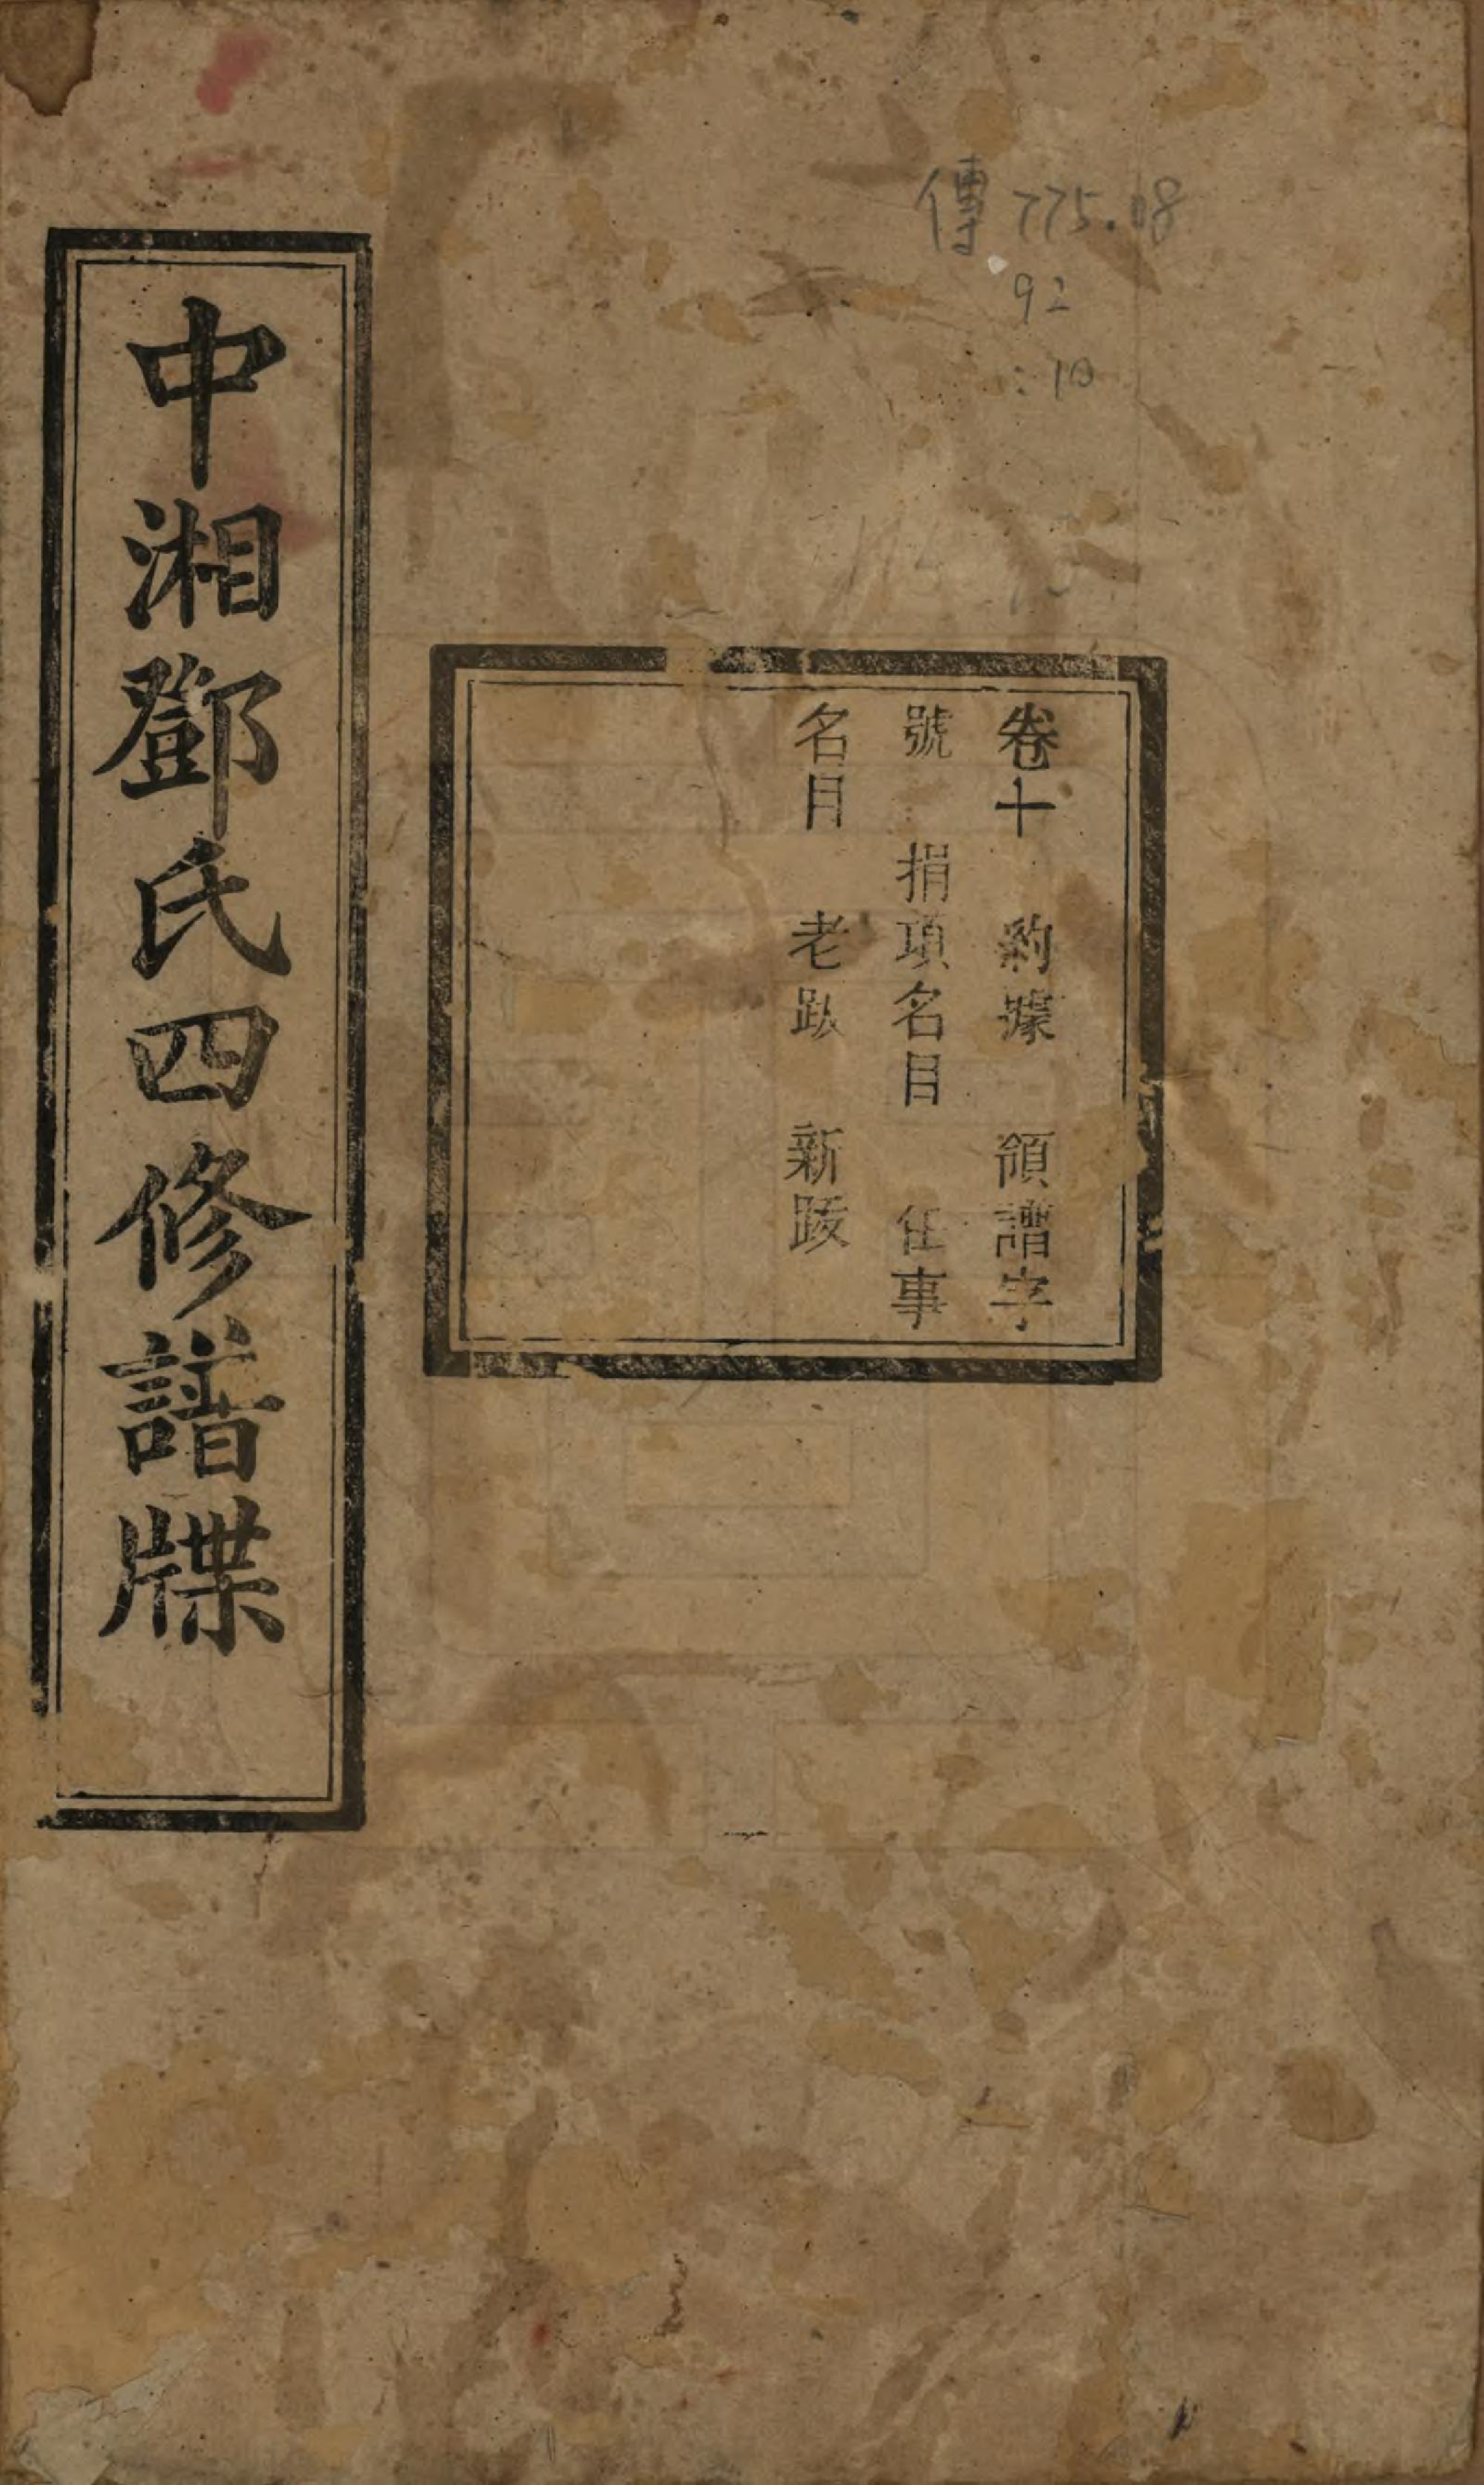 傳 775.08
92
:10
卷十 約據 領譜字
號 捐項名目 任事
名目 老跋 新跋
中湘鄧氏四修譜牒